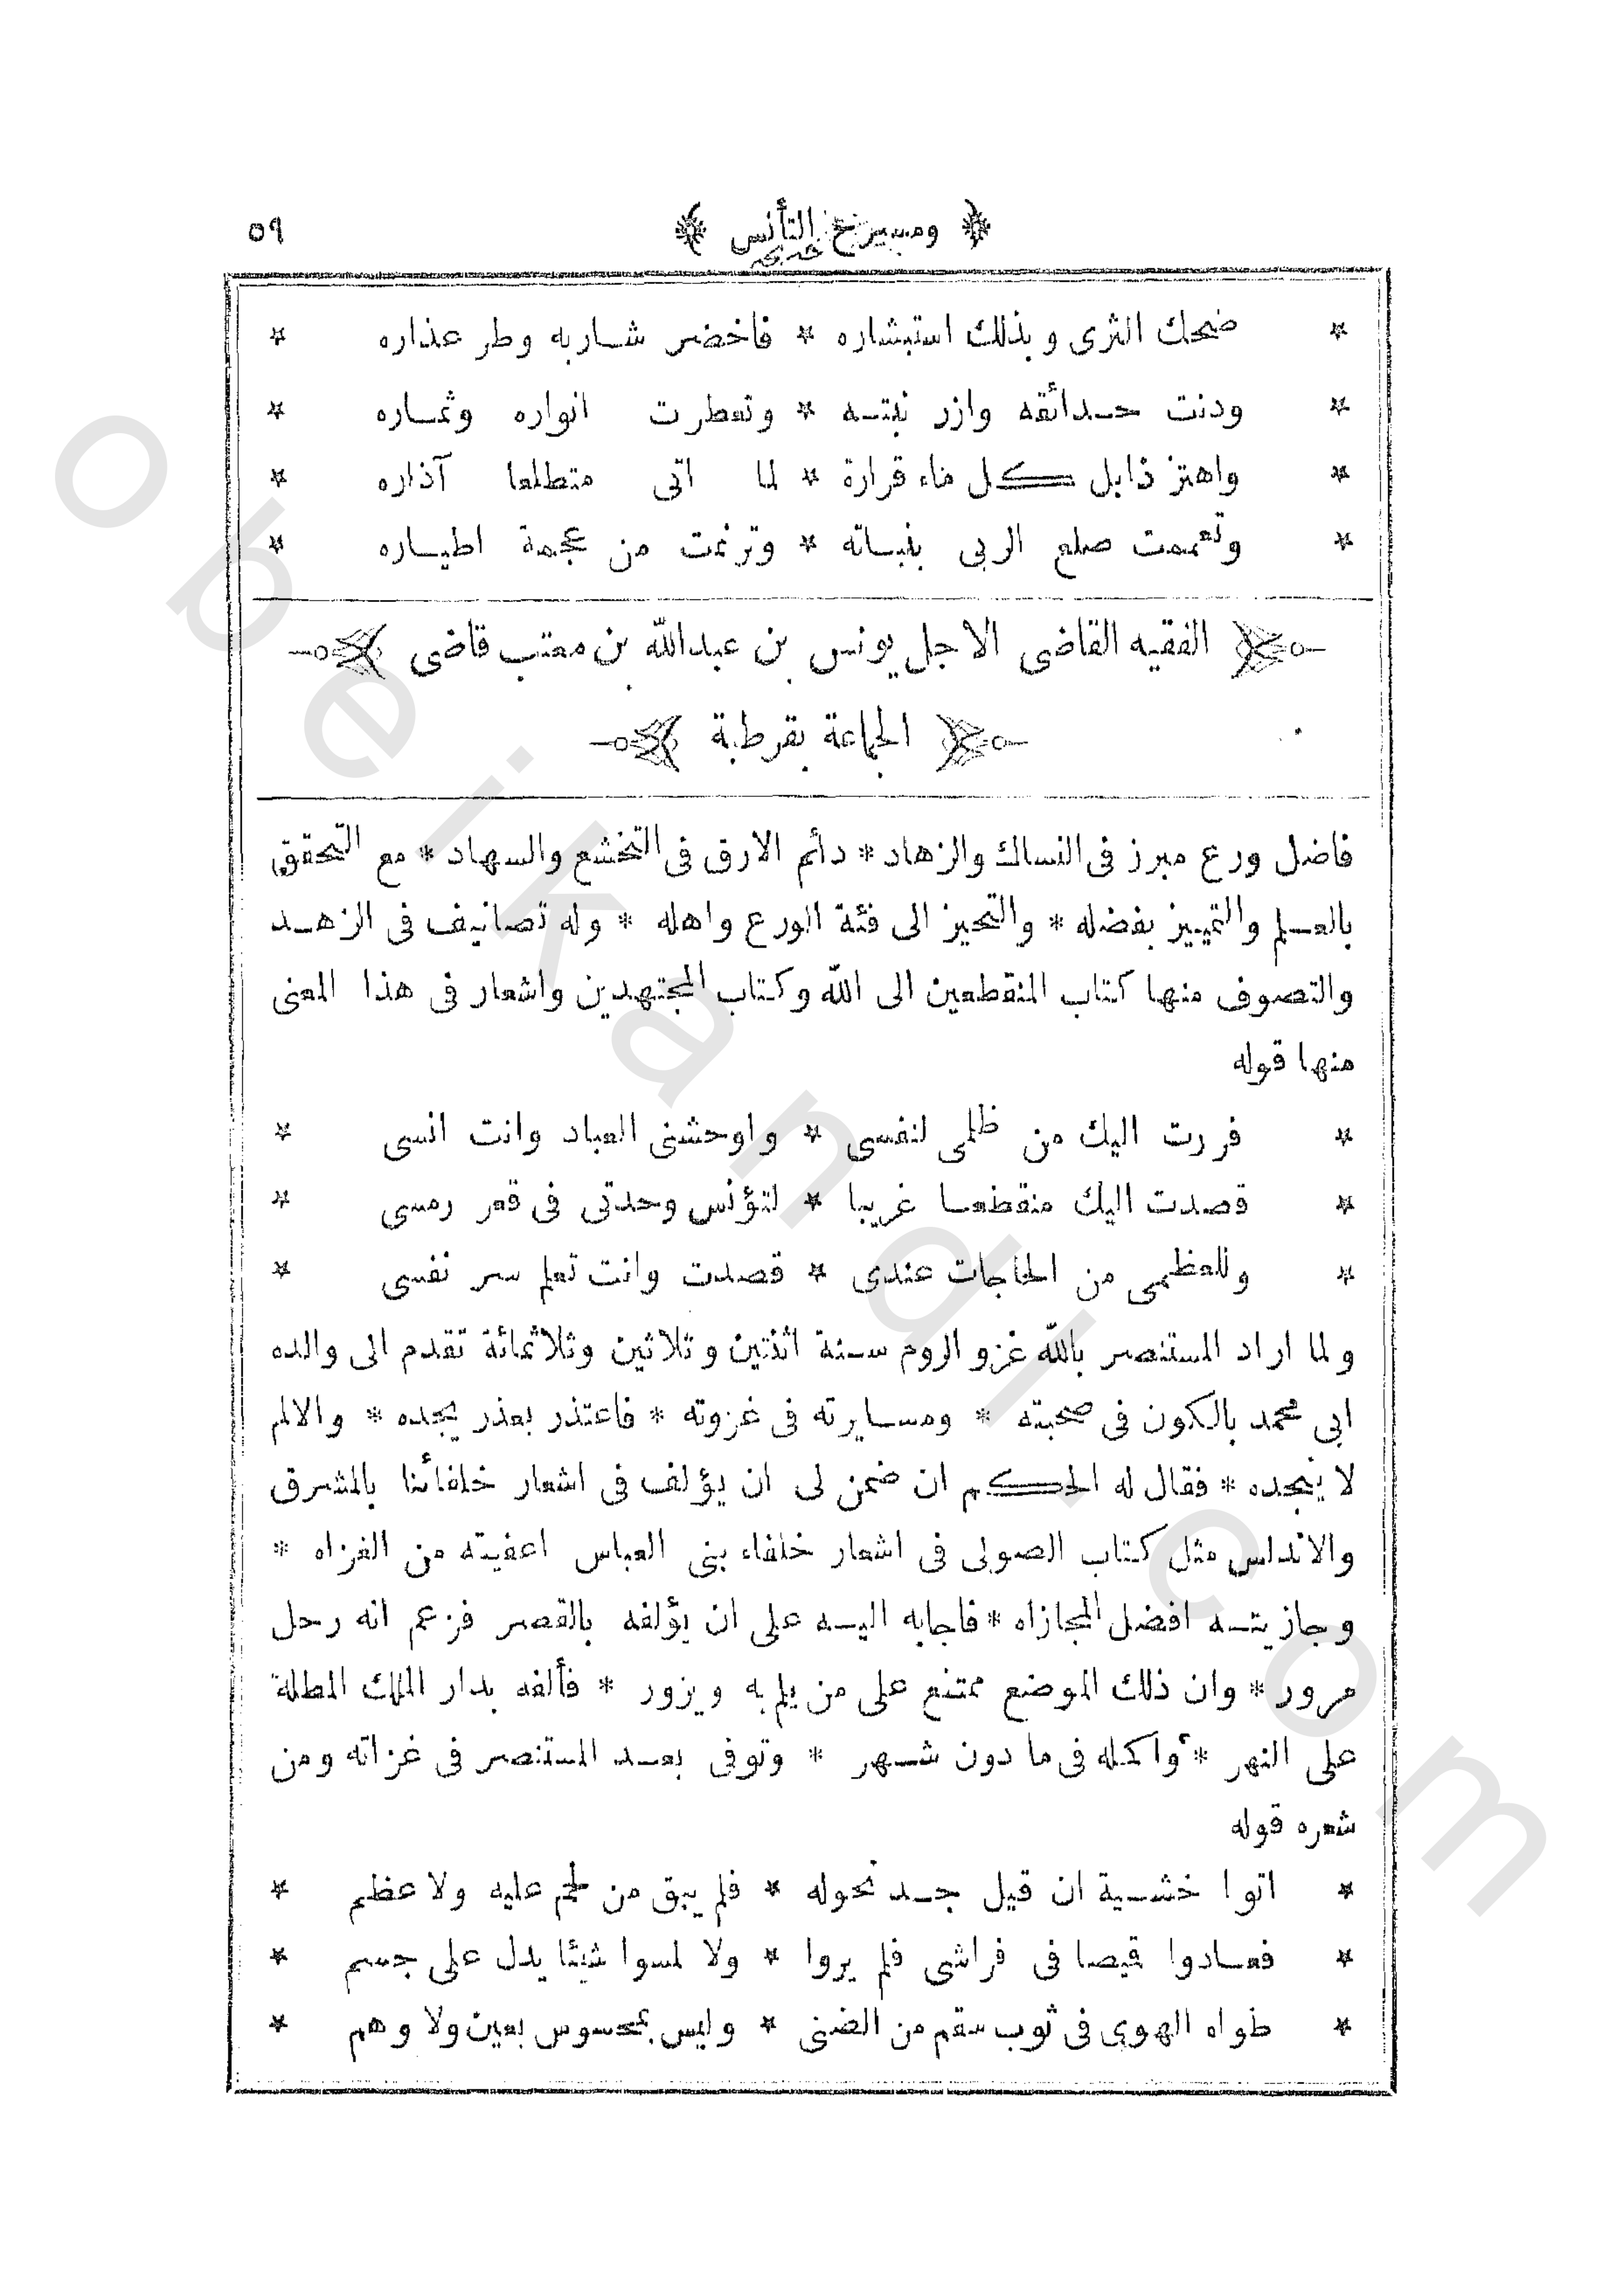 ومسرح التأنس ٥٩
* ضحك الثرى وبذلك استبشاره * فاخضر شاربه وطر عذاره *
* ودنت حدائقه وازر نبته * وتعطرت انواره وثماره *
* واهتز ذابل كل ماء قرارة * لما اتى متطلعا آذاره *
* وتعممت صلع الربى بنباته * وترنمت من عجمة اطياره *
الفقيه القاضى الاجل يونس بن عبدالله بن مغتب قاضى
الجماعة بقرطبة
فاضل ورع مبرز فى النساك والزهاد * دأئم الارق فى التخشع والسهاد * مع التحقق
بالعلم والتمييز بفضله * والتحيز الى فئة الورع واهله * وله تصانيف فى الزهد
والتصوف منها كتاب المنقطعين الى الله وكتاب المجتهدين واشعار فى هذا المعنى
منها قوله
* فررت اليك من ظلمى لنفسى * واوحشنى العباد وانت انسى *
* قصدت اليك منقطعا غريبا * لتؤنس وحدتى فى قعر رمسى *
* وللعظمى من الحاجات عندى * قصدت وانت تعلم سر نفسى *
ولما اراد المستنصر بالله غزو الروم سنة اثنتين وثلاثين وثلاثمائة تقدم الى والده
ابى محمد بالكون فى صحبته * ومسايرته فى غزوته * فاعتذر بعذر يجده * والالم
لا ينجده * فقال له الحكم ان ضمن لى ان يؤلف فى اشعار خلفائنا بالمشرق
والاندلس مثل كتاب الصولى فى اشعار خلفاء بنى العباس اعفيته من الغزاه *
وجازيته افضل المجازاه * فاجابه اليه على ان يؤلفه بالقصر فزعم انه رحل
مرور * وان ذلك الموضع ممتنع على من يلم به ويزور * فألفه بدار الملك المطلة
على النهر * واكمله فى ما دون شهر * وتوفى بعد المستنصر فى غزاته ومن
شعره قوله
* اتوا خشية ان قيل جد نحوله * فلم يبق من لحم عليه ولا عظم *
* فعادوا قيصا فى فراشى فلم يروا * ولا لمسوا شيئا يدل على جسم *
* طواه الهوى فى ثوب سقم من الضنى * وليس بمحسوس بعين ولا وهم *
obeikandi.com